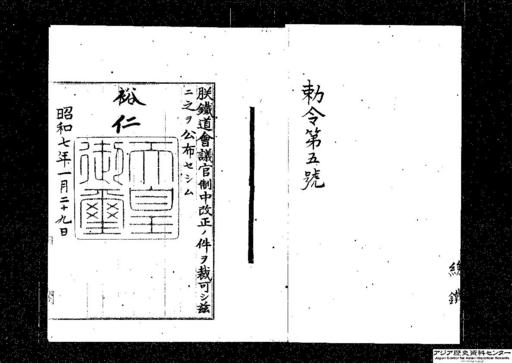 勅令第五號
朕鐵道會議官制中改正ノ件ヲ裁可シ茲
ニ之ヲ公布セシム
裕仁
天皇
御璽
昭和七年一月二十九日
アジア歴史資料センター
Japan Center for Asian Historical Records